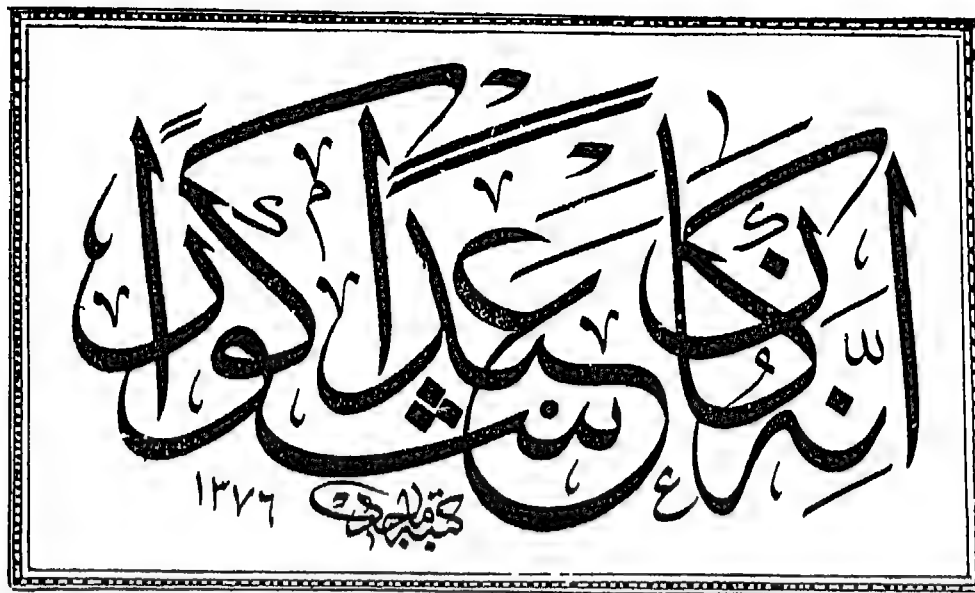 اِنَّهُ كَانَ عَبْدًا شَكُورًا
كتبه ماجد
١٣٧٦